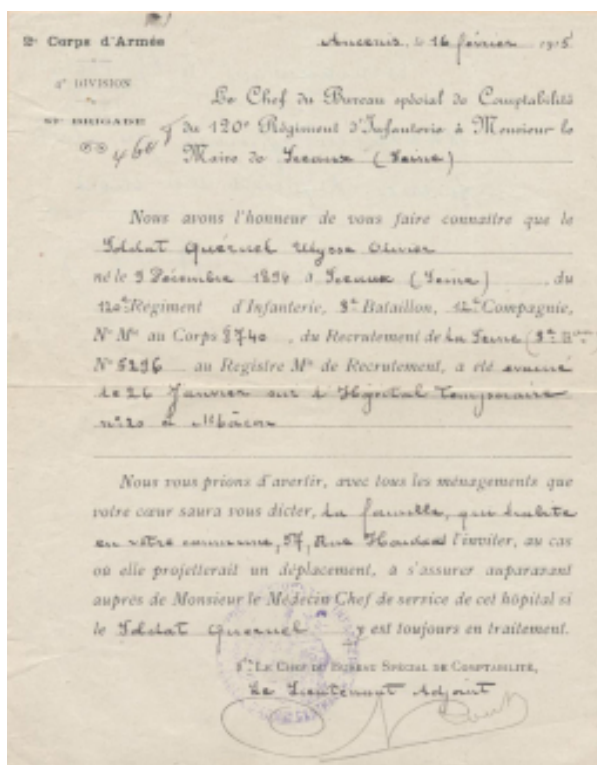 2e Corps d'Armée
Ancenis, le 16 février 1915
4e DIVISION
87e BRIGADE
Le Chef du Bureau spécial de Comptabilité
du 120e Régiment d'Infanterie à Monsieur le
Maire de Sceaux (Seine)
Nous avons l'honneur de vous faire connaître que le
Soldat Quéruel Ulysse Olivier
né le 9 Décembre 1894 à Sceaux (Seine) du
120e Régiment d'Infanterie, 3e Bataillon, 12e Compagnie,
No Mle au Corps 8740, du Recrutement de La Seine (3e Bau
No 5296 au Registre Mle de Recrutement, a été évacué
le 26 Janvier sur l'Hôpital Temporaire
no 20 à Mâcon
Nous vous prions d'avertir, avec tous les ménagements que
votre cœur saura vous dicter, la famille, qui habite
en votre commune, 57, Rue Houdan l'inviter, au cas
où elle projetterait un déplacement, à s'assurer auparavant
auprès de Monsieur le Médecin Chef de service de cet hôpital si
le Soldat Quéruel y est toujours en traitement.
LE CHEF DU BUREAU SPÉCIAL DE COMPTABILITÉ,
Le Lieutenant Adjoint